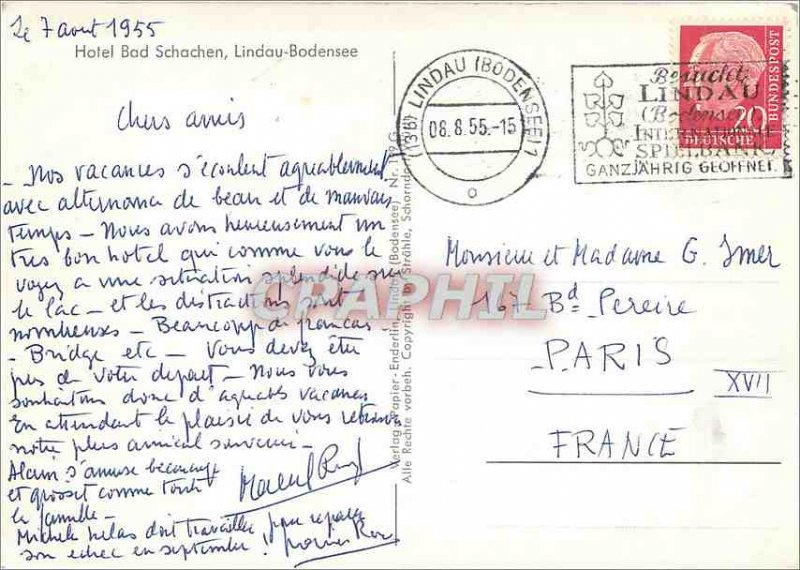 Le 7 aout 1955
Hotel Bad Schachen, Lindau-Bodensee
Chers amis
- Nos vacances s'écoulent agréablement
avec alternance de beau et de mauvais
temps - Nous avons heureusement un
très bon hotel qui comme vous le
voyez a une situation splendide sur
le lac - et les distractions sont
nombreuses - Beaucoup de francais -
- Bridge etc - Vous devez être
près de votre départ - Nous vous
souhaitons donc d'agréables vacances
En attendant le plaisir de vous retrouver
notre plus amical souvenir -
Alain s'amuse beaucoup
et grossit comme toute
la famille -
Michèle helas doit travailler pour reparer
son echec en septembre !
Verlag Papier-Enderlin, Lindau (Bodensee) Nr.
Alle Rechte vorbeh. Copyright by Strähle, Schorndorf
(13b) LINDAU (BODENSEE) 1
08.8.55.-15
Besucht
LINDAU
(Bodensee)
INTERNATIONALE
SPIELBANK
GANZJÄHRIG GEÖFFNET.
20
DEUTSCHE
BUNDESPOST
Monsieur et Madame G. Imer
167 Bd Pereire
PARIS
XVII
FRANCE
CPAPHIL